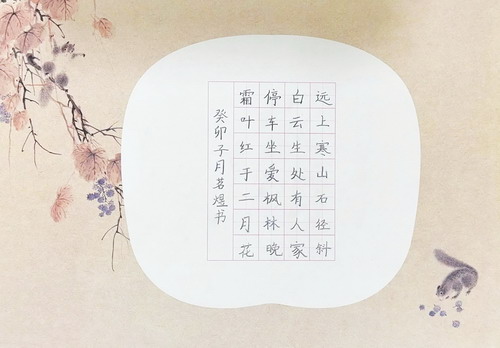 远上寒山石径斜
白云生处有人家
停车坐爱枫林晚
霜叶红于二月花
癸卯子月茗煜书